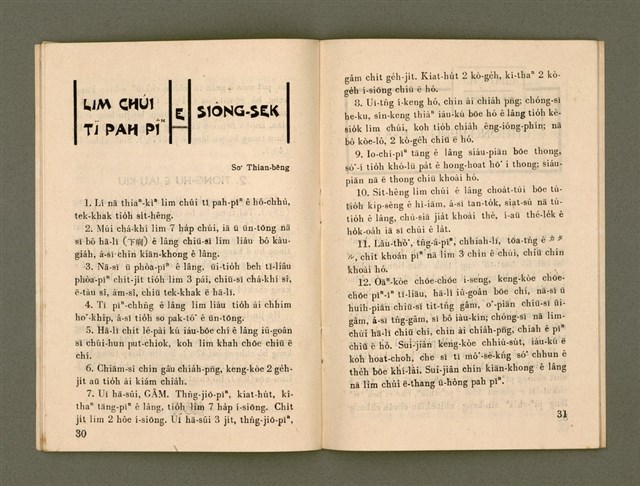 LIM CHÚI TĪ PAH PĪⁿ Ê SIÔNG-SEK
So͘ Thian-bêng
1. Lí nā thiaⁿ-kìⁿ lim chúi tī pah-pīⁿ ê hô-chhú,
tek-khak tio̍h si̍t-hêng.
2. Múi chá-khí lim 7 ha̍p chúi, iā ū ūn-tōng nā
sī bô hā-lī (下痢) ê lâng chiū-sī lim liáu bô kàu-
gia̍h, á-sī chin kiān-khong ê lâng.
3. Nā-sī ū phòa-pīⁿ ê lâng, ūi-tio̍h beh tī-liâu
phòa-pīⁿ chi̍t-ji̍t tio̍h lim 3 pái, chiū-sī chá-khí sî,
ē-tàu sî, àm-sî, chiū tek-khak ē hā-lī.
4. Tī pīⁿ-chhn̂g ê lâng lim liáu tio̍h ài chhim
ho͘-khip, á-sī tio̍h so pak-tó͘ ê ūn-tōng.
5. Hā-lī chi̍t lé-pài kú iáu-bōe chí ê lâng iû-goân
sī chúi-hun put-chiok, koh lim khah chōe chiū ē
chí.
6. Chiām-sî chin gâu chia̍h-pn̄g, keng-kòe 2 ge̍h-
ji̍t aū tio̍h ài kiám chia̍h.
7. Uī hā-sûi, GÂM. Thn̂g-jiō-pīⁿ, kiat-hu̍t, kî-
thaⁿ tāng-pīⁿ ê lâng, tio̍h lim 7 ha̍p í-siōng. Chi̍t
ji̍t lim 2 hôe í-siōng. Uī hā-sûi 3 ji̍t, thn̂g-jiō-pīⁿ,
30
gâm chi̍t ge̍h-ji̍t. Kiat-hu̍t 2 kò-ge̍h, kî-thaⁿ 2 kò-
ge̍h í-siōng chiū ē hó.
8. Uī-tn̂g í-keng hó, chin ài chia̍h pn̄g; chóng-sī
he-ku, sîn-keng thiàⁿ iáu-kú bōe hó ê lâng tio̍h kè-
sio̍k lim chúi, koh tio̍h chia̍h êng-ióng-phín; nā
bô kòe-lô, 2 kò-ge̍h chiū ē hó.
9. Io-chi-pīⁿ tāng ê lâng siáu-piān bōe thong,
só͘-í tio̍h khò-lū pa̍t ê hong-hoat ho͘ i thong; siáu-
piān nā ē thong chiū khoài hó.
10. Si̍t-hêng lim chúi ê lâng choa̍t-tùi bōe tú-
tio̍h kip-sèng ê hi-iām, á-sī tan-to̍k, sia̍t-sú nā tú-
tio̍h ê lâng, chú-siā jia̍t khoài thè, í-aū thé-le̍k ē
ho̍k-oa̍h iā sī chúi ê la̍t.
11. Lâu-thò͘, tn̂g-á-pīⁿ, chhiah-lī, tōa-tn̂g ê カタ
ル, chit khoán pīⁿ nā lim 3 chin ê chúi, chiū chin
khoài hó.
12. Oāⁿ-kòe chōe-chōe i-seng, keng-kòe chōe-
chōe pīⁿ-īⁿ tī-liâu, hā-lī iû-goân bōe chí, nā-sī ū
huih-piān chiū-sī ti̍t-tn̂g gâm, o͘-piān chiū-sī uī-
gâm, á-sī tn̂g-gâm, sī bô iáu-kin; chóng-sī nā lim-
chúi hā-lī chiū chí, chin ài chia̍h-pn̄g, chiah ê pīⁿ
chiū ē hó. Sui-jiân keng-kòe chhiú-su̍t, iáu-kú ē
koh hoat-choh, che sī tī mó͘-sè-kn̄g só͘ chhun ê
the̍h bōe khí-lâi. Sui-jiân chin kiān-khong ê lâng
nā lim chúi ē-thang ū-hông pah pīⁿ.
31